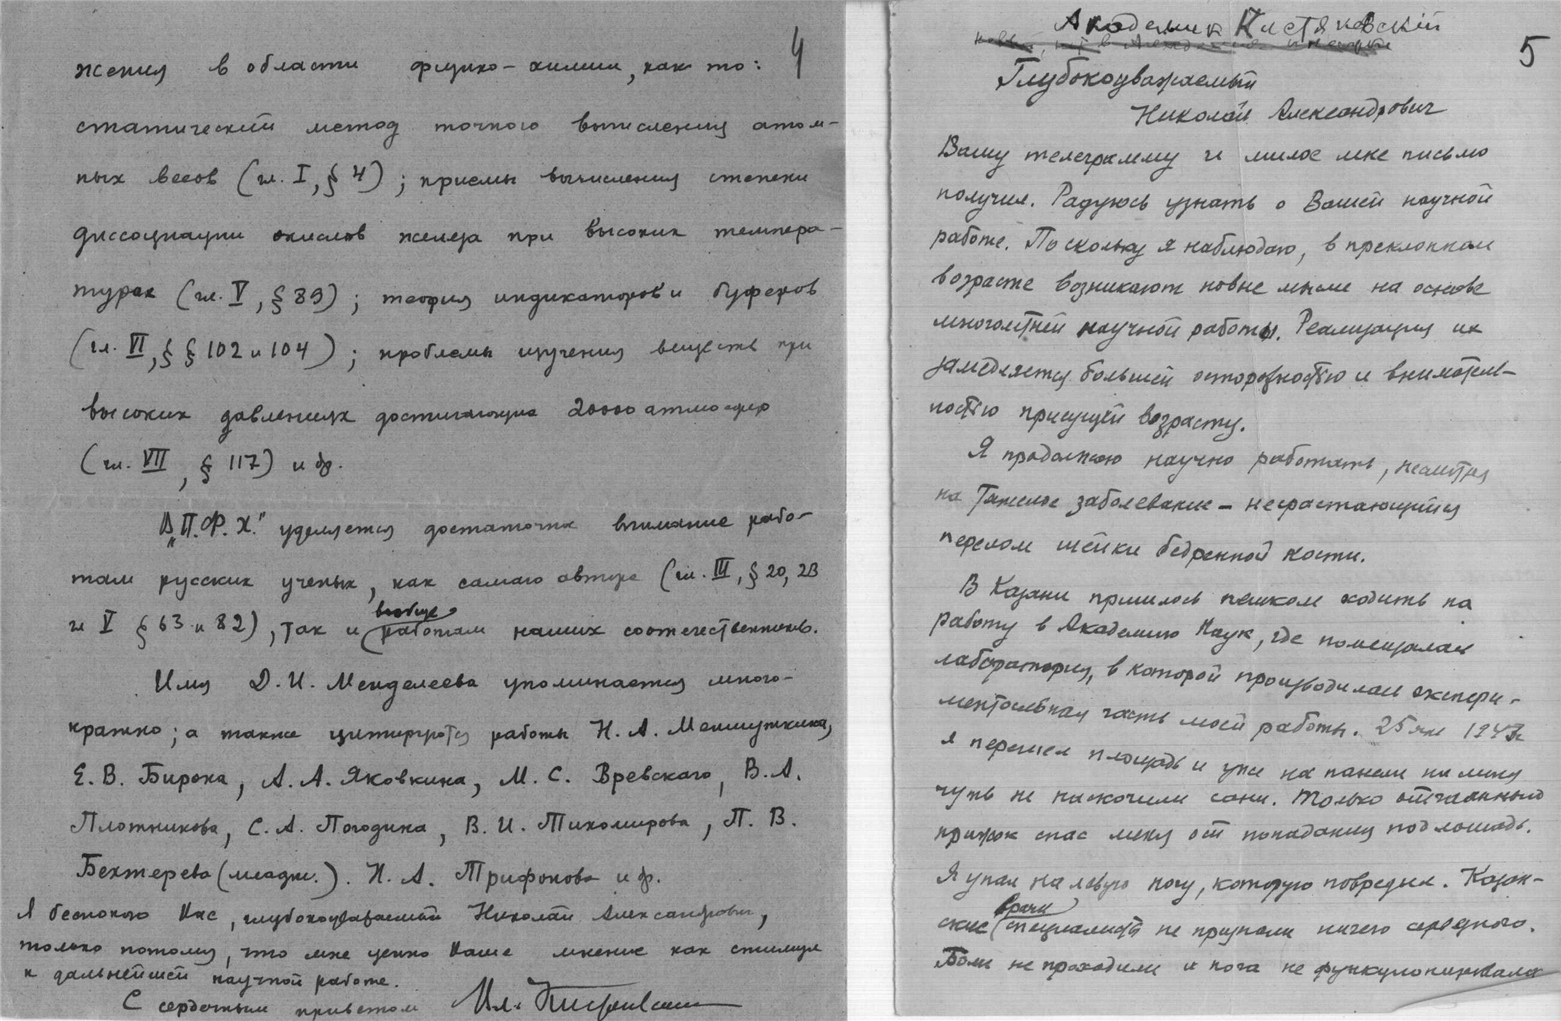 4
жения в области физико-химии, как то:
статический метод точного вычисления атом-
ных весов (гл. I, § 4); приемы вычисления степени
диссоциации окислов железа при высоких темпера-
турах (гл. V, § 89); теория индикаторов и буферов
(гл. VI, § § 102 и 104); проблемы изучения веществ при
высоких давлениях достигающих 20000 атмосфер
(гл. VII, § 117) и др.
В „П.Ф.Х." уделяется достаточно внимание рабо-
там русских ученых, как самого автора (гл. III, § 20, 23
и V § 63 и 82), так и вообще работам наших соотечественников.
Имя Д. И. Менделеева упоминается много-
кратно; а также цитируются работы Н. А. Меншуткина,
Е. В. Бирона, А. А. Яковкина, М. С. Вревского, В. А.
Плотникова, С. А. Погодина, В. И. Тихомирова, П. В.
Бехтерева (младш.). Н. А. Трифонова и др.
Я беспокою Вас, глубокоуважаемый Николай Александрович,
только потому, что мне ценно Ваше мнение как стимул
к дальнейшей научной работе.
С сердечным приветом
Академик Кистяковскій
5
Глубокоуважаемый
Николай Александрович
Вашу телеграмму и милое мне письмо
получил. Радуюсь узнать о Вашей научной
работе. Поскольку я наблюдаю, в преклонном
возрасте возникают новые мысли на основе
многолетней научной работы. Реализация их
замедляется большей осторожностью и вниматель-
ностью присущей возрасту.
Я продолжаю научно работать, несмотря
на тяжелое заболевание – несрастающийся
перелом шейки бедренной кости.
В Казани пришлось пешком ходить на
работу в Академию Наук, где помещалась
лаборатория, в которой производилась экспери-
ментальная часть моей работы. 25 янв 1943 г.
я перешел площадь и уже на панели на меня
чуть не наскочили сани. Только отчаянный
прыжок спас меня от попадания под лошадь.
Я упал на левую ногу, которую повредил. Казан-
ские врачи специалисты не признали ничего серьезного.
Боли не проходили и нога не функционировала